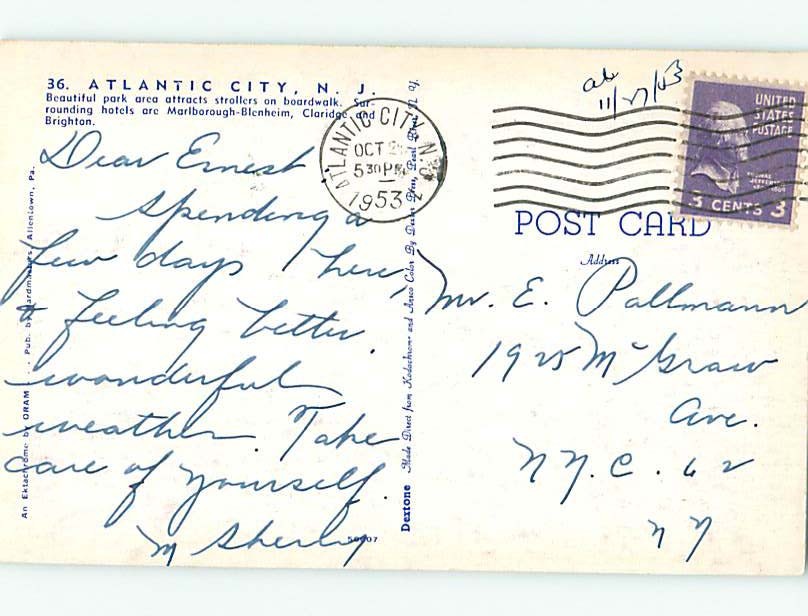 36. ATLANTIC CITY, N. J.
Beautiful park area attracts strollers on boardwalk. Sur-
rounding hotels are Marlborough-Blenheim, Claridge and
Brighton.
Dear Ernest
Spending a
few days here,
& feeling better.
wonderful
weather. Take
care of yourself.
M Sherry
50907
An Ektachrome by ORAM . . . Pub. by Cardmasters, Allentown, Pa.
Dextone Made Direct from Kodachrome and Ansco Color By Dexter Press, Pearl River, N. Y.
ATLANTIC CITY, N.J.
OCT
530 PM
1953
11/27/53
UNITED
STATES
POSTAGE
THOMAS
JEFFERSON
3 CENTS 3
POST CARD
Address
Mr. E. Pallmann
1925 McGraw
Ave.
N.Y.C. 62
N Y